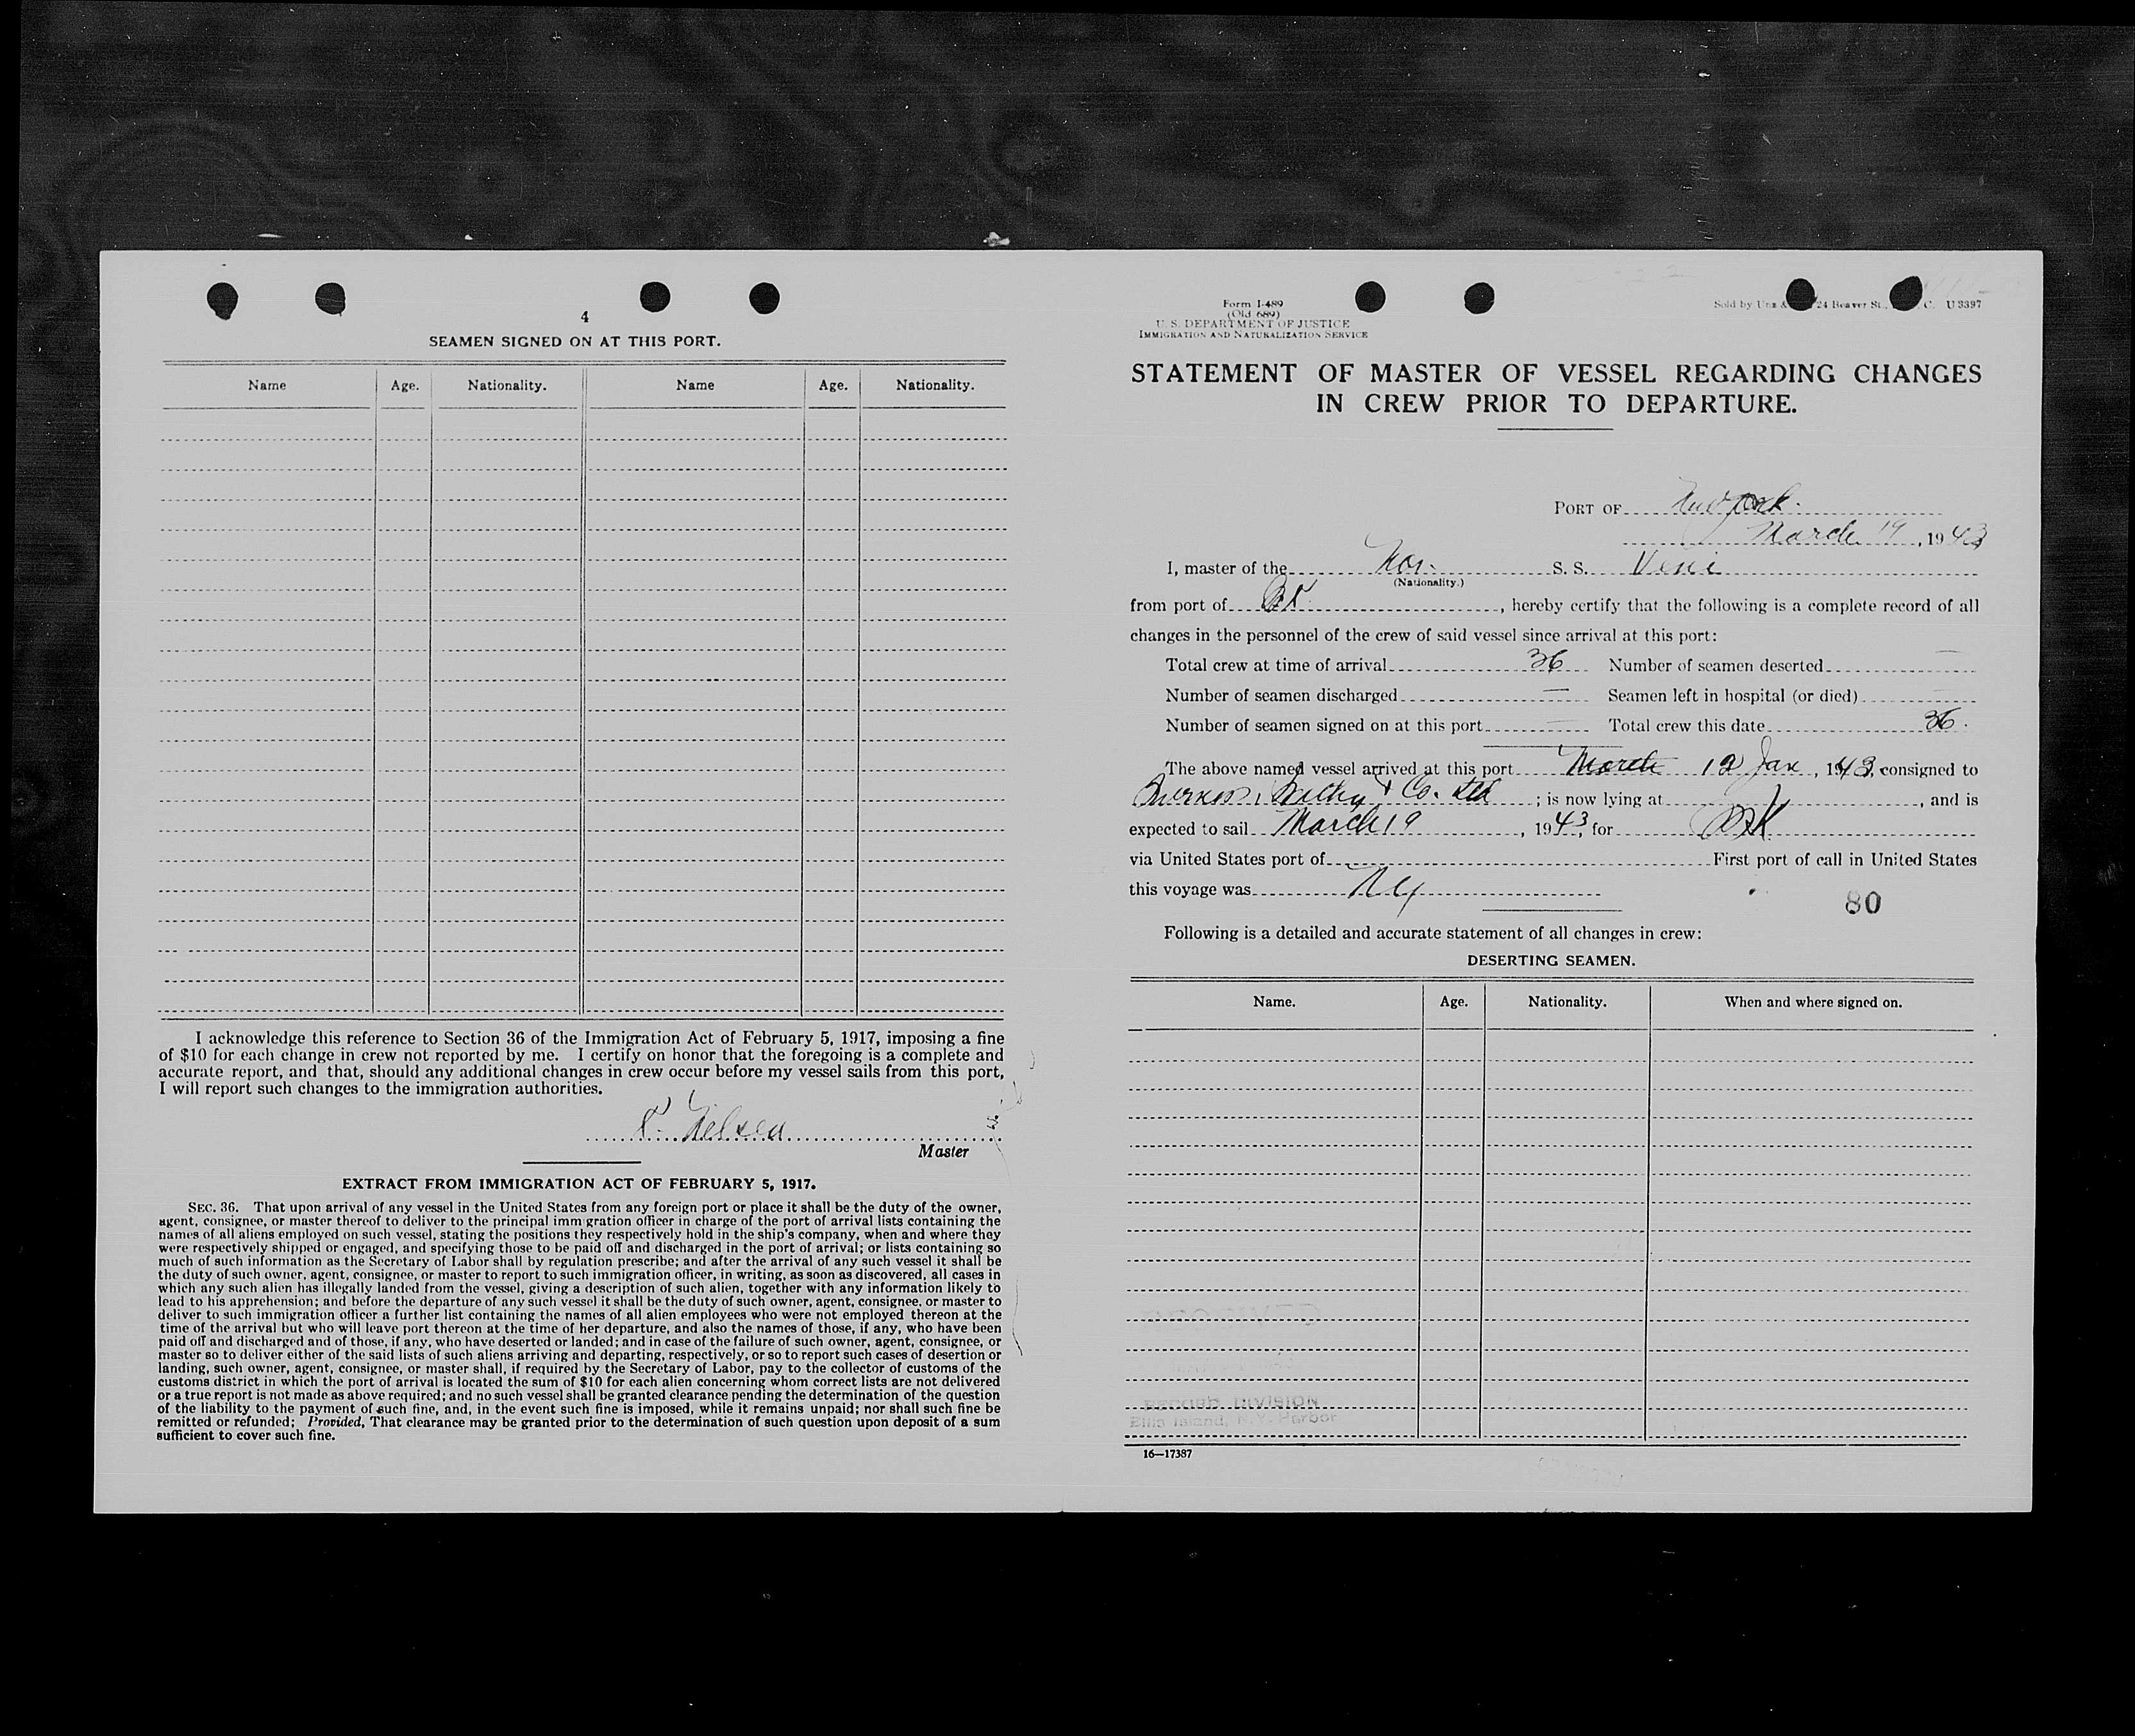 4
SEAMEN SIGNED ON AT THIS PORT.
Name Age. Nationality. Name Age. Nationality.
I acknowledge this reference to Section 36 of the Immigration Act of February 5, 1917, imposing a fine
of $10 for each change in crew not reported by me. I certify on honor that the foregoing is a complete and
accurate report, and that, should any additional changes in crew occur before my vessel sails from this port,
I will report such changes to the immigration authorities.
Nielsen
Master
EXTRACT FROM IMMIGRATION ACT OF FEBRUARY 5, 1917.
SEC. 36. That upon arrival of any vessel in the United States from any foreign port or place it shall be the duty of the owner,
agent, consignee, or master thereof to deliver to the principal imm gration officer in charge of the port of arrival lists containing the
names of all aliens employed on such vessel, stating the positions they respectively hold in the ship's company, when and where they
were respectively shipped or engaged, and specifying those to be paid off and discharged in the port of arrival; or lists containing so
much of such information as the Secretary of Labor shall by regulation prescribe; and after the arrival of any such vessel it shall be
the duty of such owner, agent, consignee, or master to report to such immigration officer, in writing, as soon as discovered, all cases in
which any such alien has illegally landed from the vessel, giving a description of such alien, together with any information likely to
lead to his apprehension; and before the departure of any such vessel it shall be the duty of such owner, agent, consignee, or master to
deliver to such immigration officer a further list containing the names of all alien employees who were not employed thereon at the
time of the arrival but who will leave port thereon at the time of her departure, and also the names of those, if any, who have been
paid off and discharged and of those, if any, who have deserted or landed; and in case of the failure of such owner, agent, consignee, or
master so to deliver either of the said lists of such aliens arriving and departing, respectively, or so to report such cases of desertion or
landing, such owner, agent, consignee, or master shall, if required by the Secretary of Labor, pay to the collector of customs of the
customs district in which the port of arrival is located the sum of $10 for each alien concerning whom correct lists are not delivered
or a true report is not made as above required; and no such vessel shall be granted clearance pending the determination of the question
of the liability to the payment of such fine, and, in the event such fine is imposed, while it remains unpaid; nor shall such fine be
remitted or refunded; Provided, That clearance may be granted prior to the determination of such question upon deposit of a sum
sufficient to cover such fine.
Form I-489
(Old 689)
U. S. DEPARTMENT OF JUSTICE
IMMIGRATION AND NATURALIZATION SERVICE
Sold by Unz & 24 Beaver St., C. U 3397
STATEMENT OF MASTER OF VESSEL REGARDING CHANGES
IN CREW PRIOR TO DEPARTURE.
PORT OF New York.
March 19, 1943
I, master of the Nor. S. S. Veni
(Nationality.)
from port of , hereby certify that the following is a complete record of all
changes in the personnel of the crew of said vessel since arrival at this port:
Total crew at time of arrival 36 Number of seamen deserted —
Number of seamen discharged — Seamen left in hospital (or died) —
Number of seamen signed on at this port — Total crew this date 36.
The above named vessel arrived at this port March 12 Jan, 1943, consigned to
Furness, Withy & Co. Ltd ; is now lying at , and is
expected to sail March 19, 1943, for
via United States port of First port of call in United States
this voyage was NY
80
Following is a detailed and accurate statement of all changes in crew:
DESERTING SEAMEN.
Name. Age. Nationality. When and where signed on.
RECORD DIVISION
Ellis Island, N.Y. Harbor
16—17387